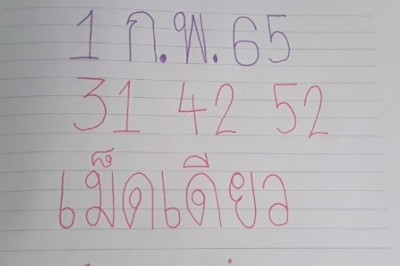 1 ก.พ.65
31 42 52
เม็ดเดียว